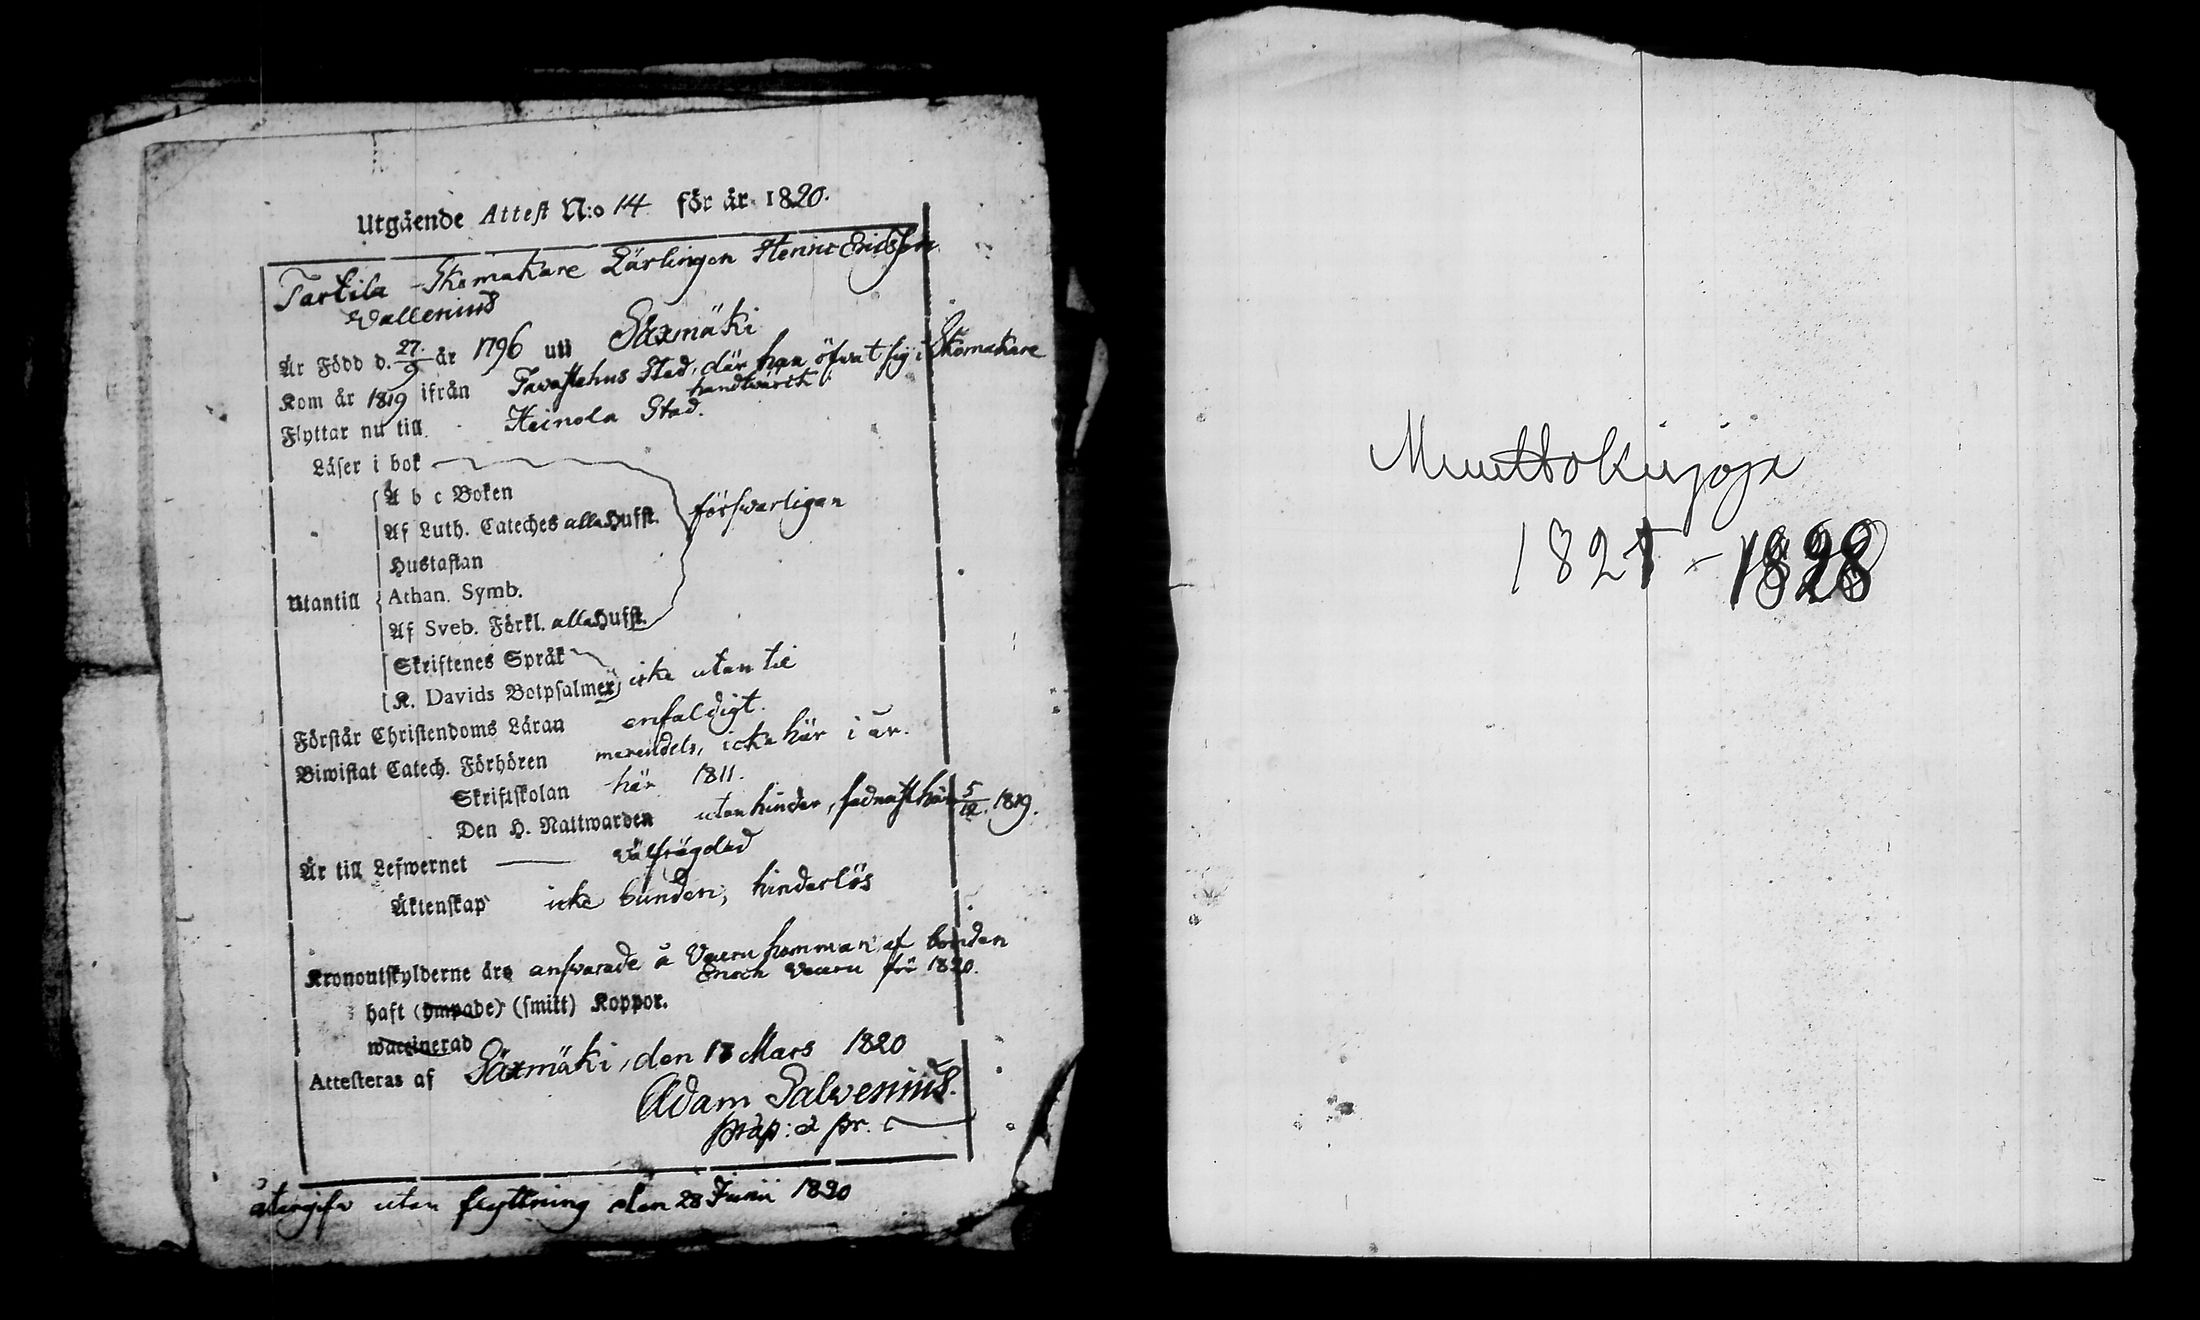 Utgående Attest N:o 14 för år 1820.
Tarkila Skomakare Lärlingen Henric Ericsson
Wallenius
Är Född d. 27/9 år 1796 uti Säxmäki
Kom år 1819 ifrån Tavastehus Stad, där han öfvat sig i Skomakare
handtwärck
Flyttar nu till Heinola Stad.
Läser i bok
A b c Boken
Af Luth. Cateches alla Hufst. försvarligen
Hustaflan
Utantill Athan. Symb.
Af Sveb. Förkl. alla Hufst.
Skriftenes Språk
K. Davids Botpsalmer icke utan til
Förstår Christendoms Läran enfaldigt.
Biwistat Catech. Förhören merendels, icke här i år.
Skriftskolan här 1811.
Den H. Nattwarden utan hinder, sednast här 5/12 1819.
Är till Lefwernet välfrägdad
Äktenskap icke bunden, hinderlös
Kronoutskylderne äro ansvarade å Vaeru hemman af bonden
Enoch Vaeru för 1820.
haft (ympade) (smitt) Koppor.
waccinerad
Attesteras af Säxmäki, den 18 Mars 1820
Adam Salvenius.
Präp: & pr.
återgifv utan flyttning den 28 Junii 1820
Muuttokirjoja
1821 - 1828